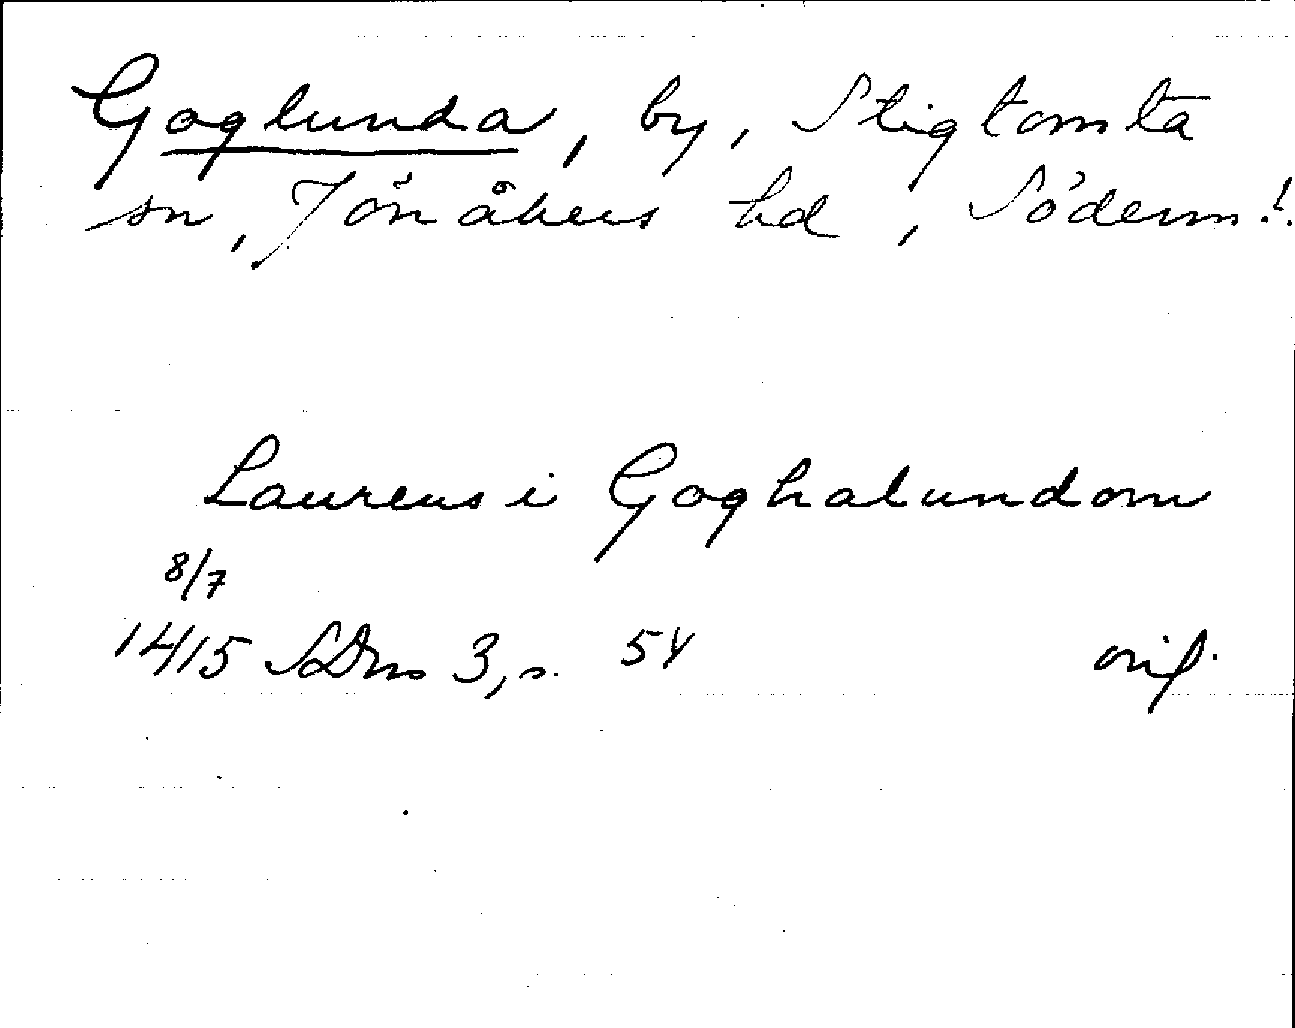 Goglunda, by, Stigtomta
sn, Jönåkers hd, Söderm!.
Laurens i Goghalundom
8/7
1415 SDns 3, s. 54
orig.